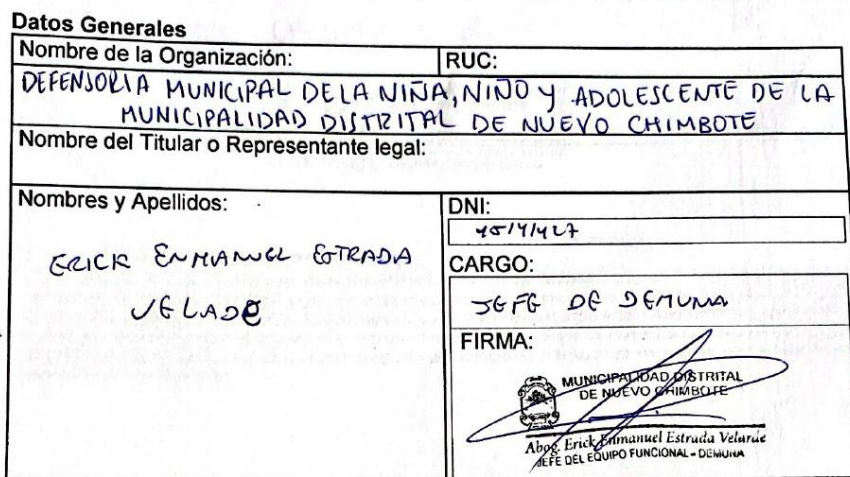 Datos Generales
Nombre de la Organización: RUC:
DEFENSORIA MUNICIPAL DE LA NIÑA, NIÑO Y ADOLESCENTE DE LA
MUNICIPALIDAD DISTRITAL DE NUEVO CHIMBOTE
Nombre del Titular o Representante legal:
Nombres y Apellidos:
ERICK ENMANUEL ESTRADA
VELADE
DNI:
CARGO:
JEFE DE DEMUNA
FIRMA:
MUNICIPALIDAD DISTRITAL
DE NUEVO CHIMBOTE
Abog. Erick Enmanuel Estrada Velarde
JEFE DEL EQUIPO FUNCIONAL - DEMUNA